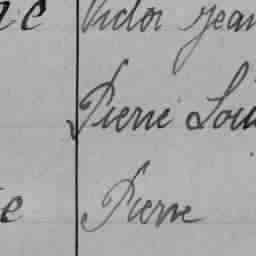 Victor Jean
Pierre Loui
Pierre